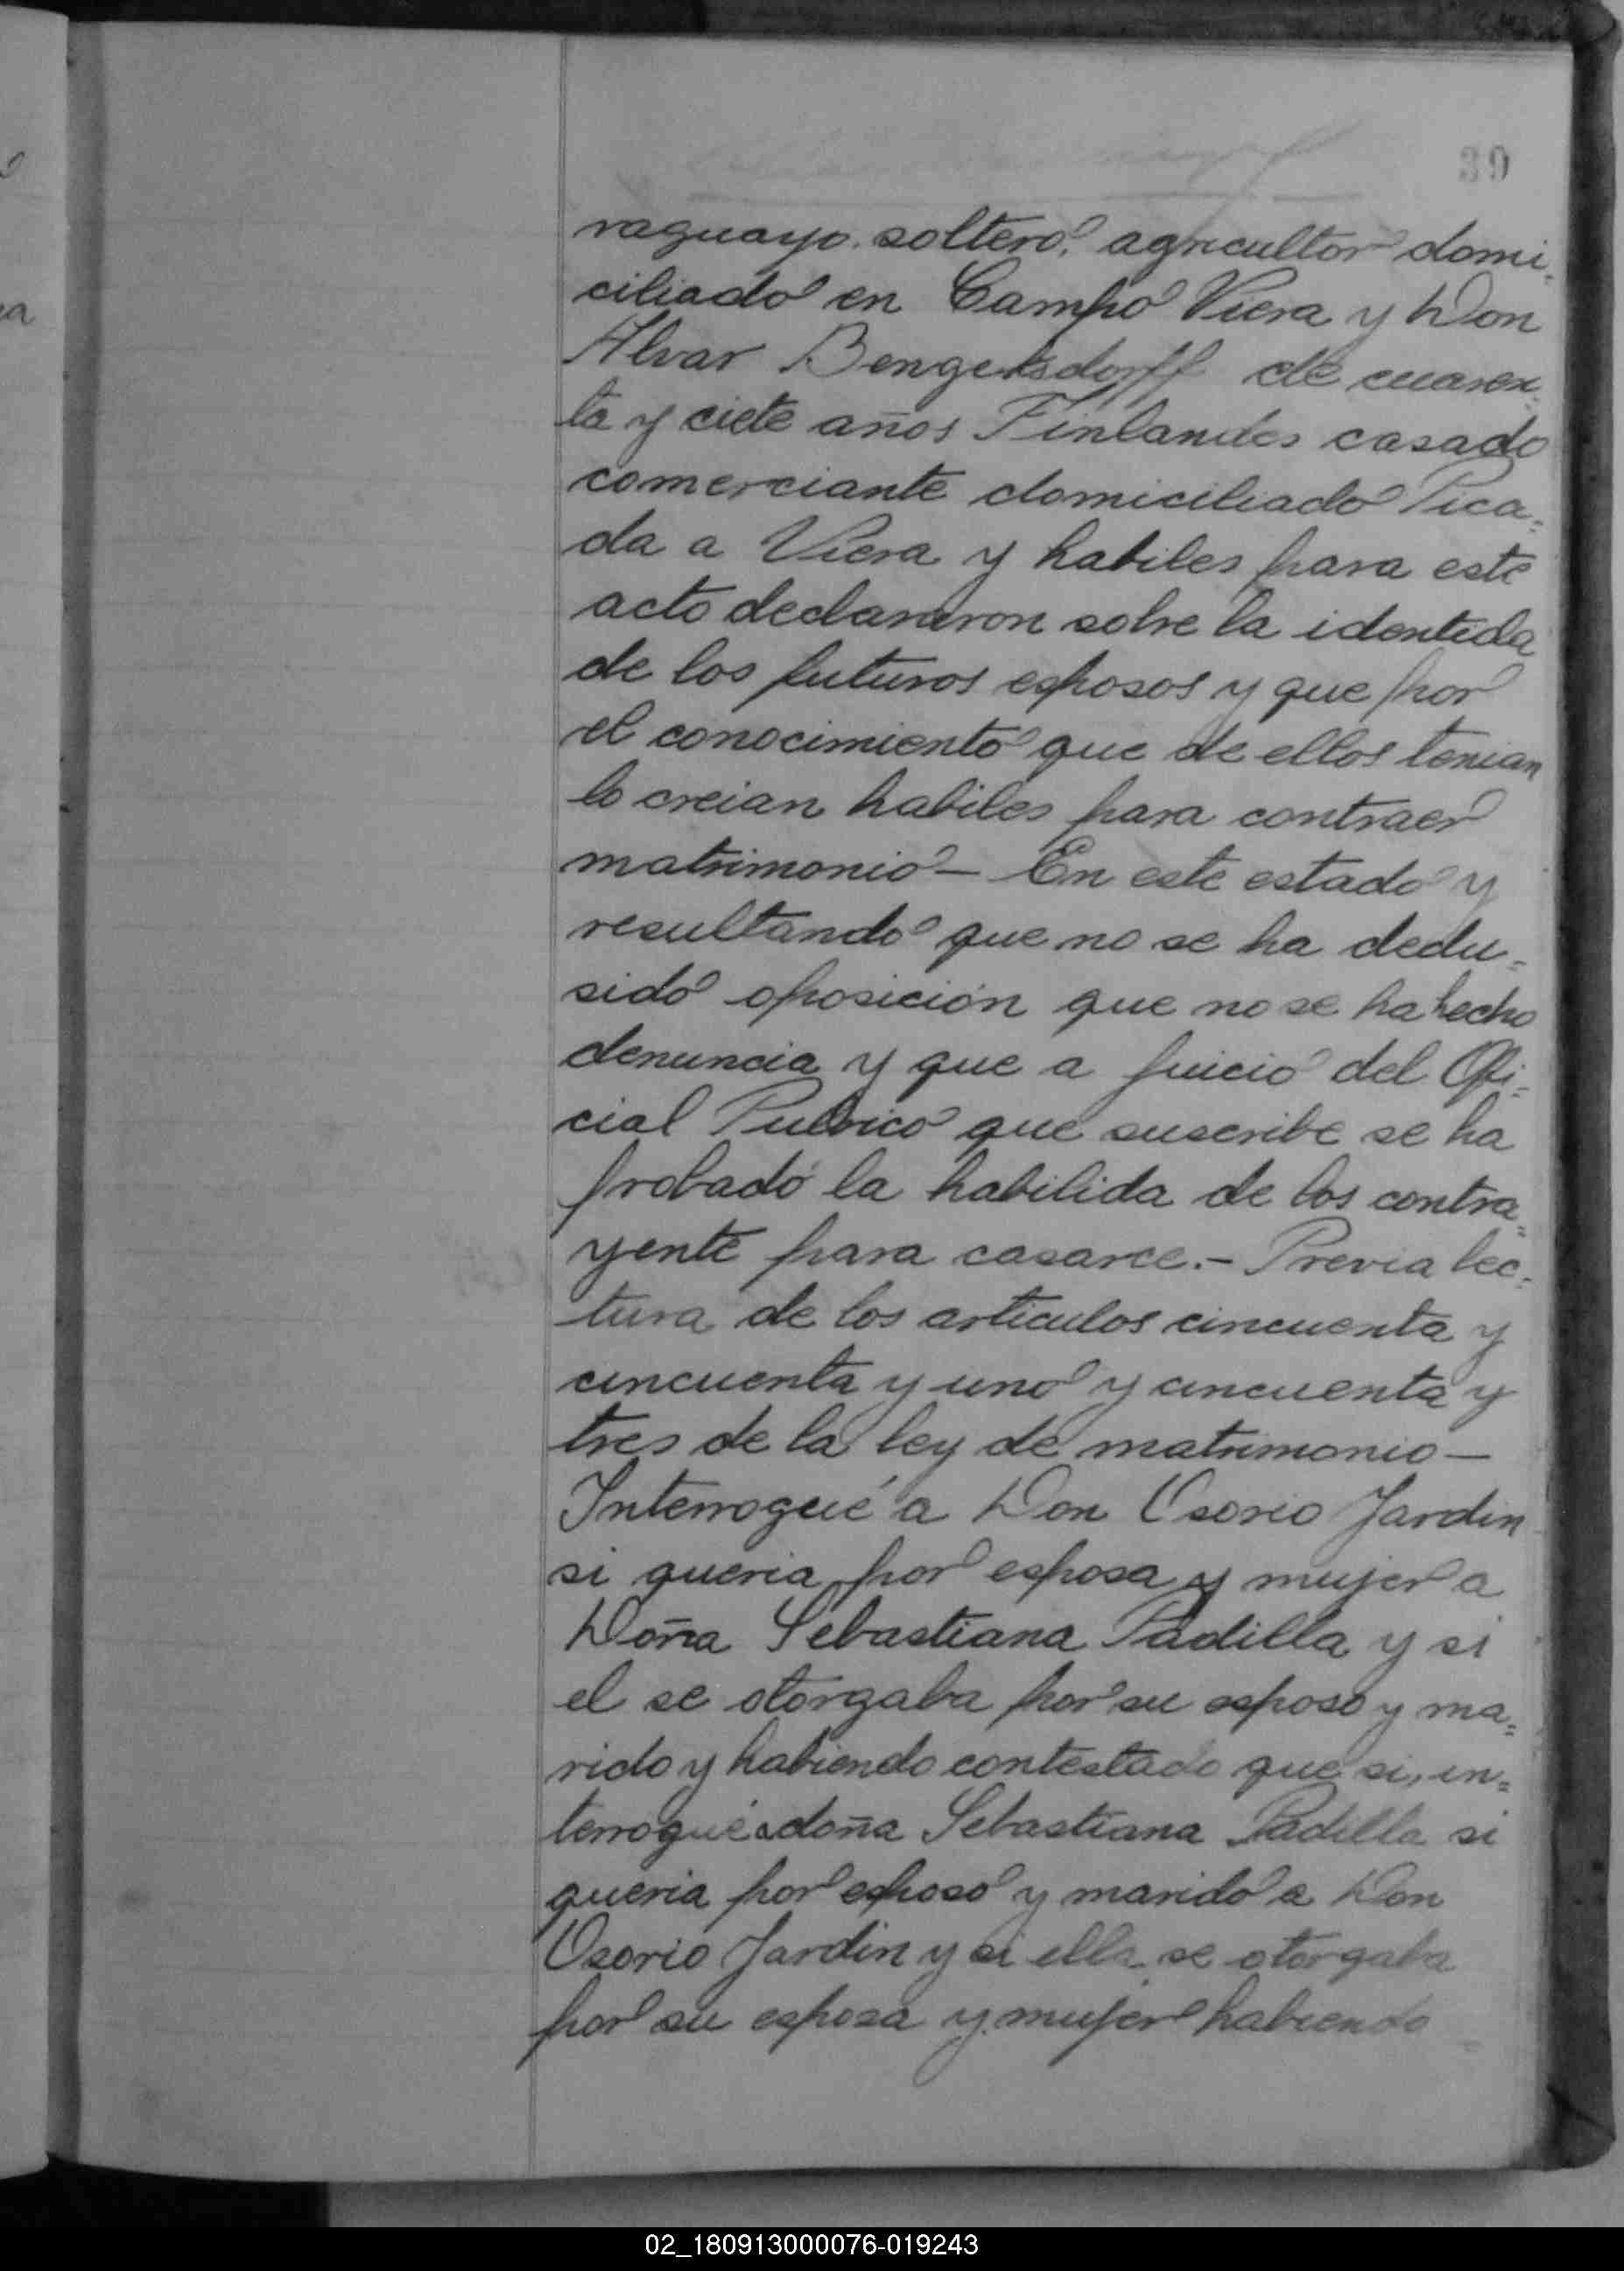 39
raguayo. soltero. agricultor domi-
ciliado en Campo Viera y Don
Alvar Bengetsdorff de cuaren-
ta y ciete años Finlandes casado
comerciante domiciliado Pica=
da a Viera y habiles para este
acto declararon sobre la identida
de los futuros esposos y que por
el conocimiento que de ellos tenian
lo creian habiles para contraer
matrimonio – En este estado y
resultando que no se ha dedu=
sido oposición que no se ha hecho
denuncia y que a juicio del Ofi=
cial Publico que suscribe se ha
probado la habilida de los contra=
yente para casarce.- Previa lec=
tura de los articulos cincuenta y
cincuenta y uno y cincuenta y
tres de la ley de matrimonio –
Interrogué a Don Osorio Jardin
si queria por esposa y mujer a
Doña Sebastiana Padilla y si
el se otorgaba por su esposo y ma=
rido y habiendo contestado que si, in=
terrogué a doña Sebastiana Padilla si
queria por esposo y marido a Don
Osorio Jardin y si ella se otorgaba
por su esposa y mujer habiendo
02_180913000076-019243